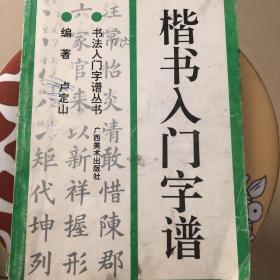 楷书入门字谱
书法入门字谱丛书
广西美术出版社
编著
卢定山
注常怡炎清敢惜陳郡
六家官来以新祥握形
矩代坤列